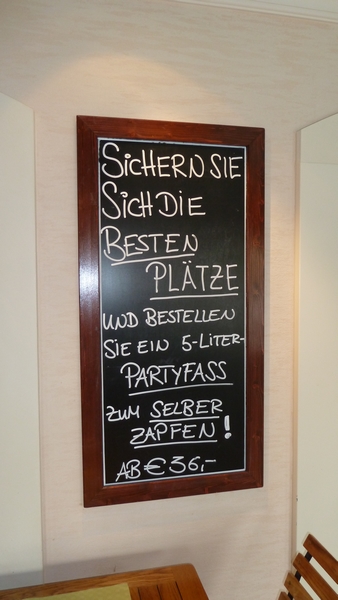 SICHERN SIE
SICH DIE
BESTEN
PLÄTZE
UND BESTELLEN
SIE EIN 5-LITER-
PARTYFASS
ZUM SELBER
ZAPFEN!
AB € 36,-